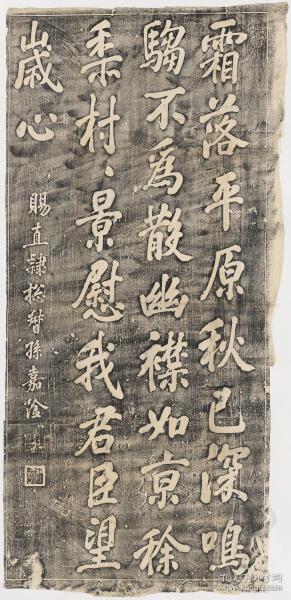 霜落平原秋已深鳴
騶不爲散幽襟如京稌
黍村〻景慰我君臣望
歲心
賜直隸捴督孫嘉淦